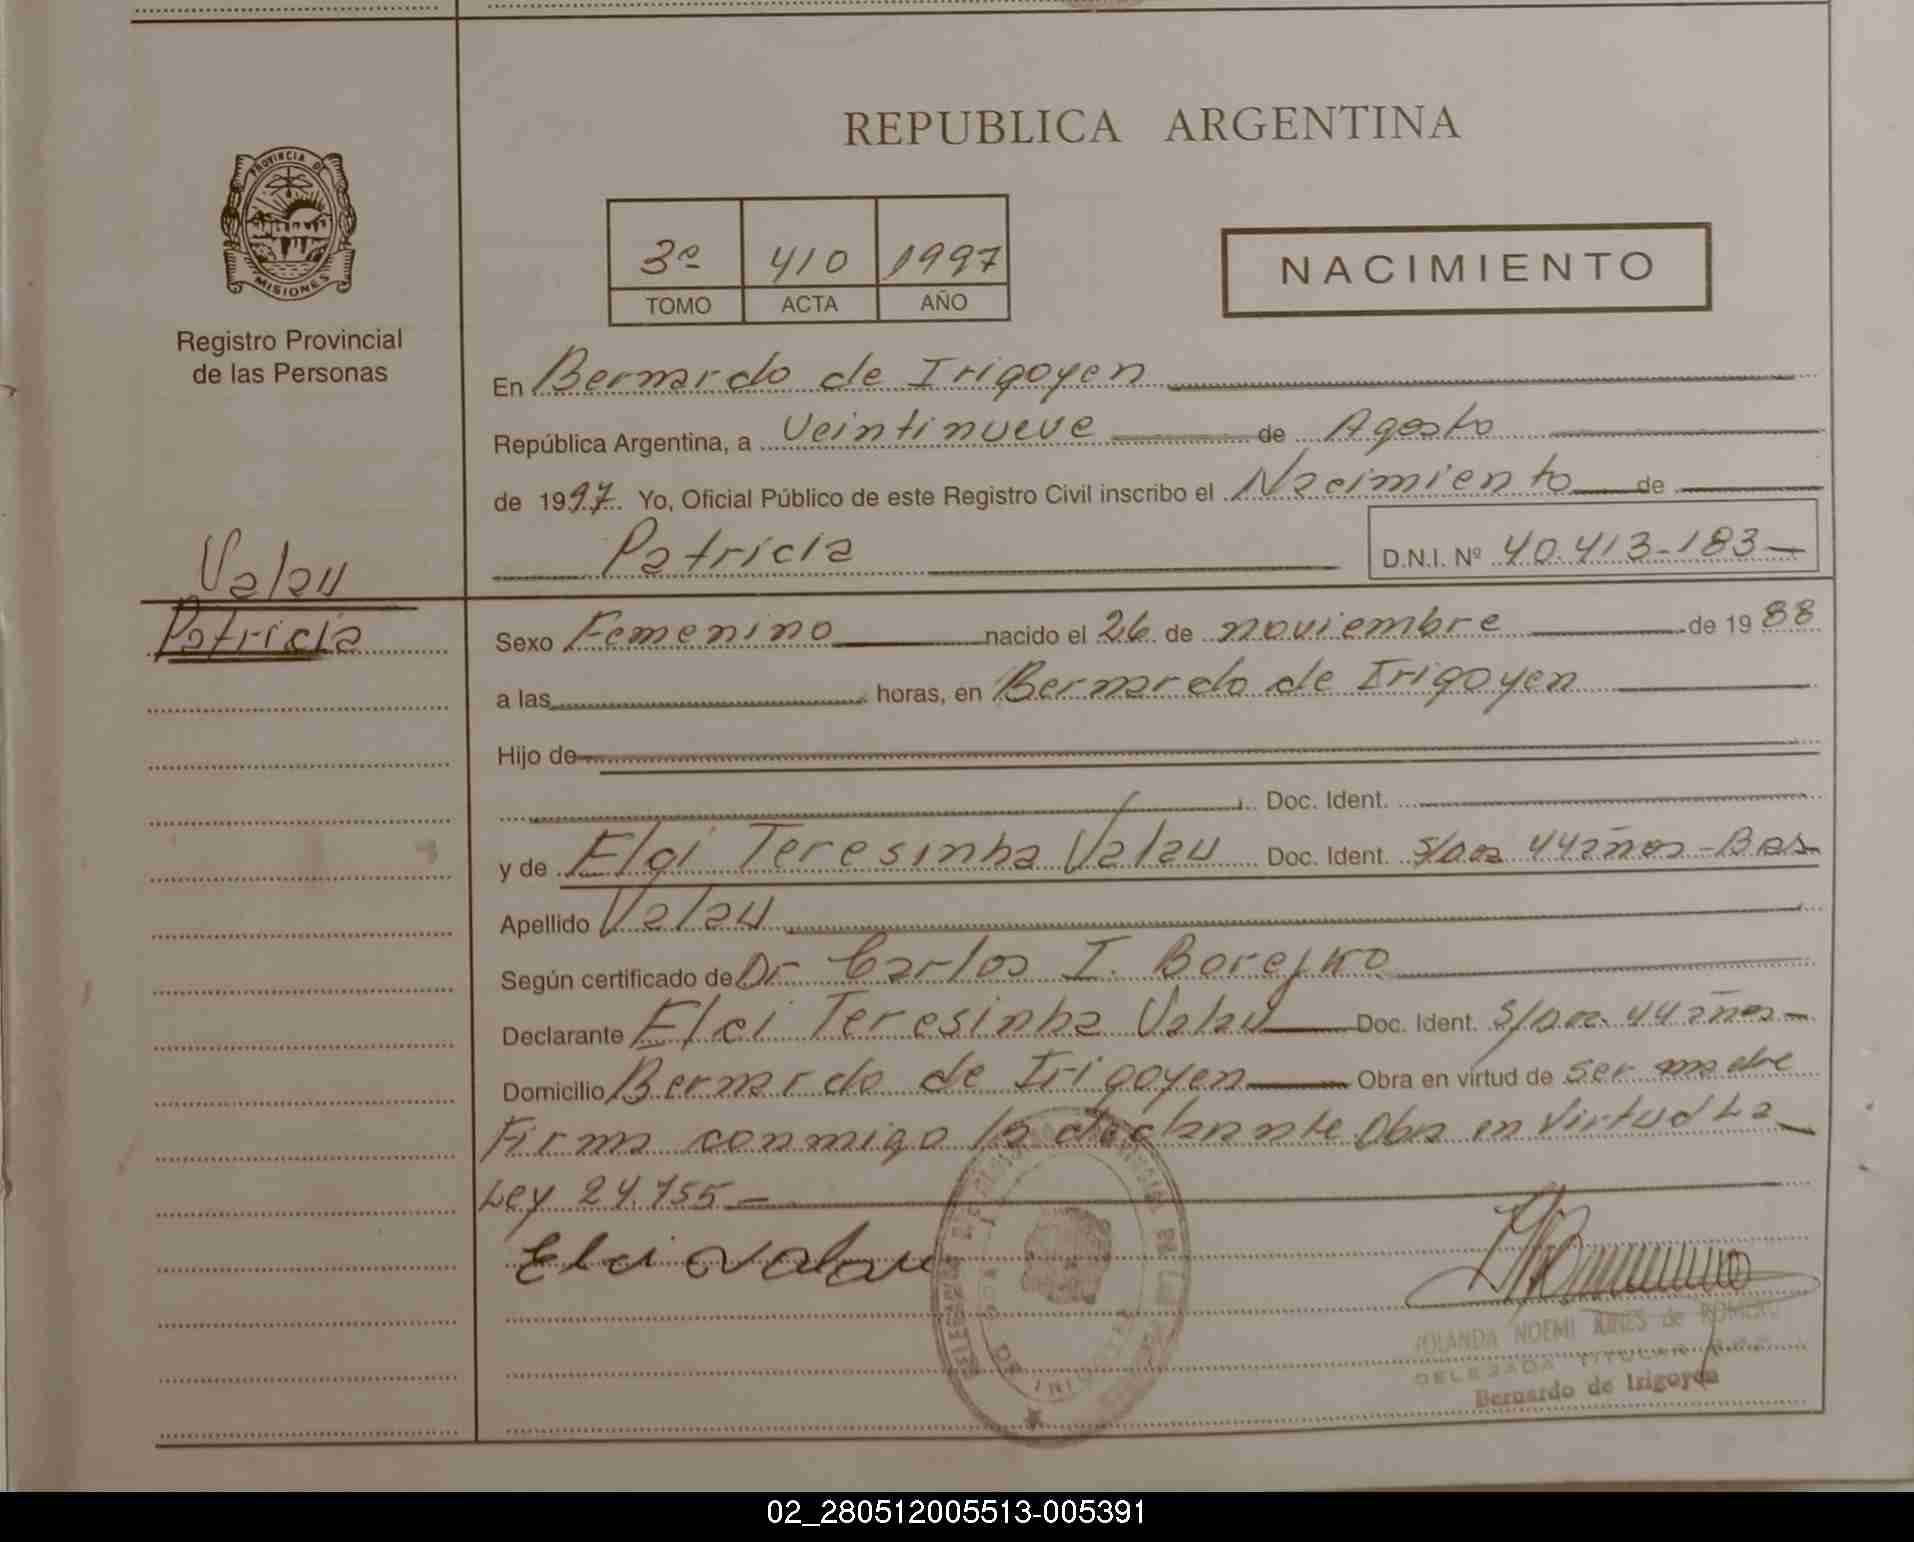 REPUBLICA ARGENTINA
PROVINCIA DE
MISIONES
Registro Provincial
de las Personas
3º 410 1997
TOMO ACTA AÑO
NACIMIENTO
En Bernardo de Irigoyen
República Argentina, a Veintinueve de Agosto
de 1997. Yo, Oficial Público de este Registro Civil inscribo el Nacimiento de
Patricia D.N.I. Nº 40.413-183-
Valau
Patricia
Sexo Femenino nacido el 26 de noviembre de 1988
a las horas, en Bernardo de Irigoyen
Hijo de
Doc. Ident.
y de Elci Teresinha Valau Doc. Ident. S/Doc 44 años - Bas
Apellido Valau
Según certificado de Dr Carlos I. Borejko
Declarante Elci Teresinha Valau Doc. Ident. S/Doc. 44 años -
Domicilio Bernardo de Irigoyen Obra en virtud de ser madre
Firma conmigo la declarante Obra en Virtud La
Ley 24.755-
Elci Valau
YOLANDA NOEMI AIRES de ROMERO
DELEGADA TITULAR
Bernardo de Irigoyen
02_280512005513-005391